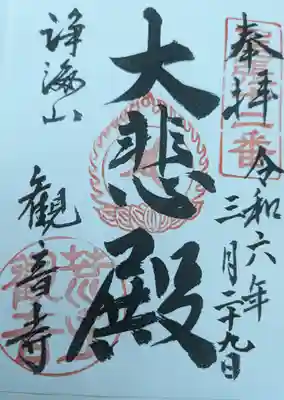 奉拝
令和六年
三月二十九日
大悲殿
諍海山
観音寺